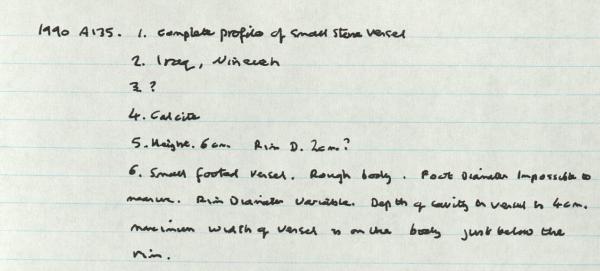 1990 A135. 1. Complete profile of small stone vessel
2. Iraq, Nineveh
3. ?
4. Calcite
5. Height. 6cm. Rim D. 2cm?
6. Small footed vessel. Rough body. Foot Diameter Impossible to
measure. Rim Diameter variable. Depth of cavity in vessel is 4cm.
maximum width of vessel is on the body just below the
rim.